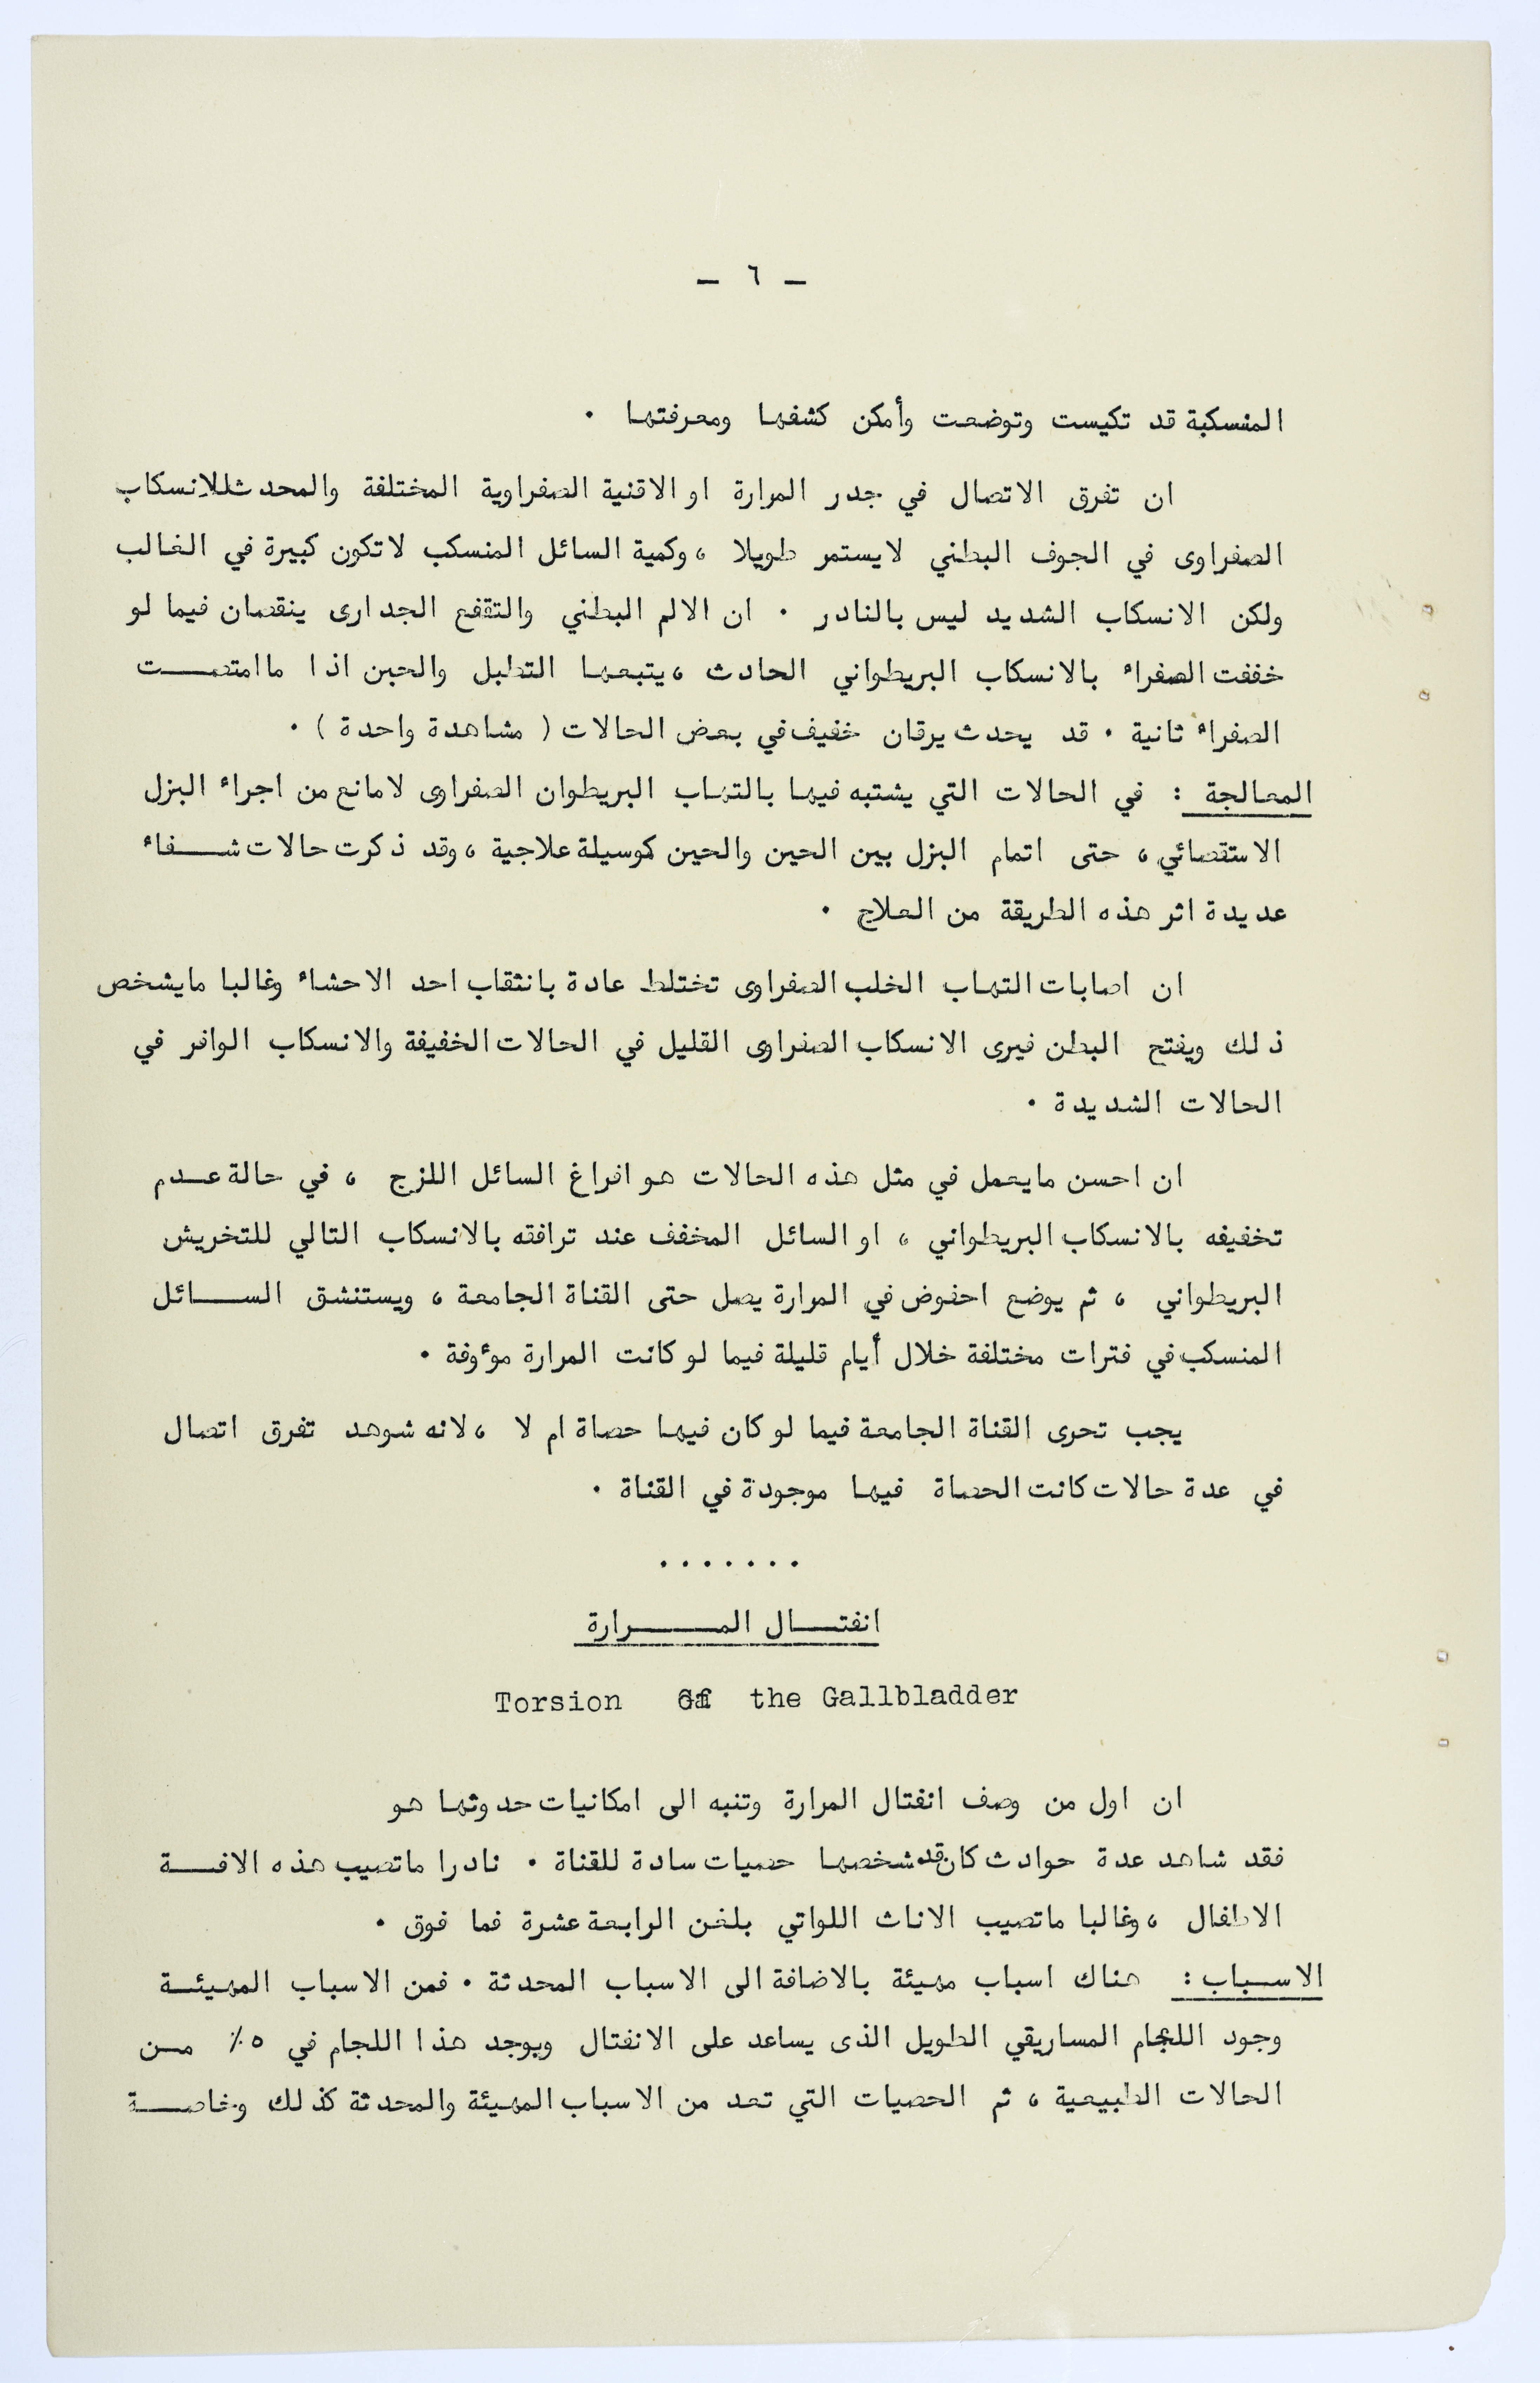 - ٦ -
المنسكبة قد تكيست وتوضعت وأمكن كشفها ومعرفتها .
ان تفرق الاتصال في جدر المرارة او الاقنية الصفراوية المختلفة والمحدث للانسكاب
الصفراوى في الجوف البطني لا يستمر طويلا ، وكمية السائل المنسكب لا تكون كبيرة في الغالب
ولكن الانسكاب الشديد ليس بالنادر . ان الالم البطني والتقفع الجدارى ينقصان فيما لو
خففت الصفراء بالانسكاب البريطواني الحادث ، يتبعها التطبل والحبن اذا ما امتصت
الصفراء ثانية . قد يحدث يرقان خفيف في بعض الحالات ( مشاهدة واحدة ) .
المعالجة : في الحالات التي يشتبه فيها بالتهاب البريطوان الصفراوى لا مانع من اجراء البزل
الاستقصائي ، حتى اتمام البزل بين الحين والحين كوسيلة علاجية ، وقد ذكرت حالات شفاء
عديدة اثر هذه الطريقة من العلاج .
ان اصابات التهاب الخلب الصفراوى تختلط عادة بانثقاب احد الاحشاء وغالبا مايشخص
ذلك ويفتح البطن فيرى الانسكاب الصفراوى القليل في الحالات الخفيفة والانسكاب الوافر في
الحالات الشديدة .
ان احسن مايعمل في مثل هذه الحالات هو افراغ السائل اللزج ، في حالة عدم
تخفيفه بالانسكاب البريطواني ، او السائل المخفف عند ترافقه بالانسكاب التالي للتخريش
البريطواني ، ثم يوضع احفوض في المرارة يصل حتى القناة الجامعة ، ويستنشق السائل
المنسكب في فترات مختلفة خلال أيام قليلة فيما لو كانت المرارة موءوفة .
يجب تحرى القناة الجامعة فيما لو كان فيها حصاة ام لا ، لانه شوهد تفرق اتصال
في عدة حالات كانت الحصاة فيها موجودة في القناة .
. . . . . . .
انفتال المرارة
Torsion Of the Gallbladder
ان اول من وصف انفتال المرارة وتنبه الى امكانيات حدوثها هو
فقد شاهد عدة حوادث كان قد شخصها حصيات سادة للقناة . نادرا ماتصيب هذه الافة
الاطفال ، وغالبا ماتصيب الاناث اللواتي بلغن الرابعة عشرة فما فوق .
الاسباب : هناك اسباب مهيئة بالاضافة الى الاسباب المحدثة . فمن الاسباب المهيئة
وجود اللجام المساريقي الطويل الذى يساعد على الانفتال ويوجد هذا اللجام في ٥٪ من
الحالات الطبيعية ، ثم الحصيات التي تعد من الاسباب المهيئة والمحدثة كذلك وخاصة